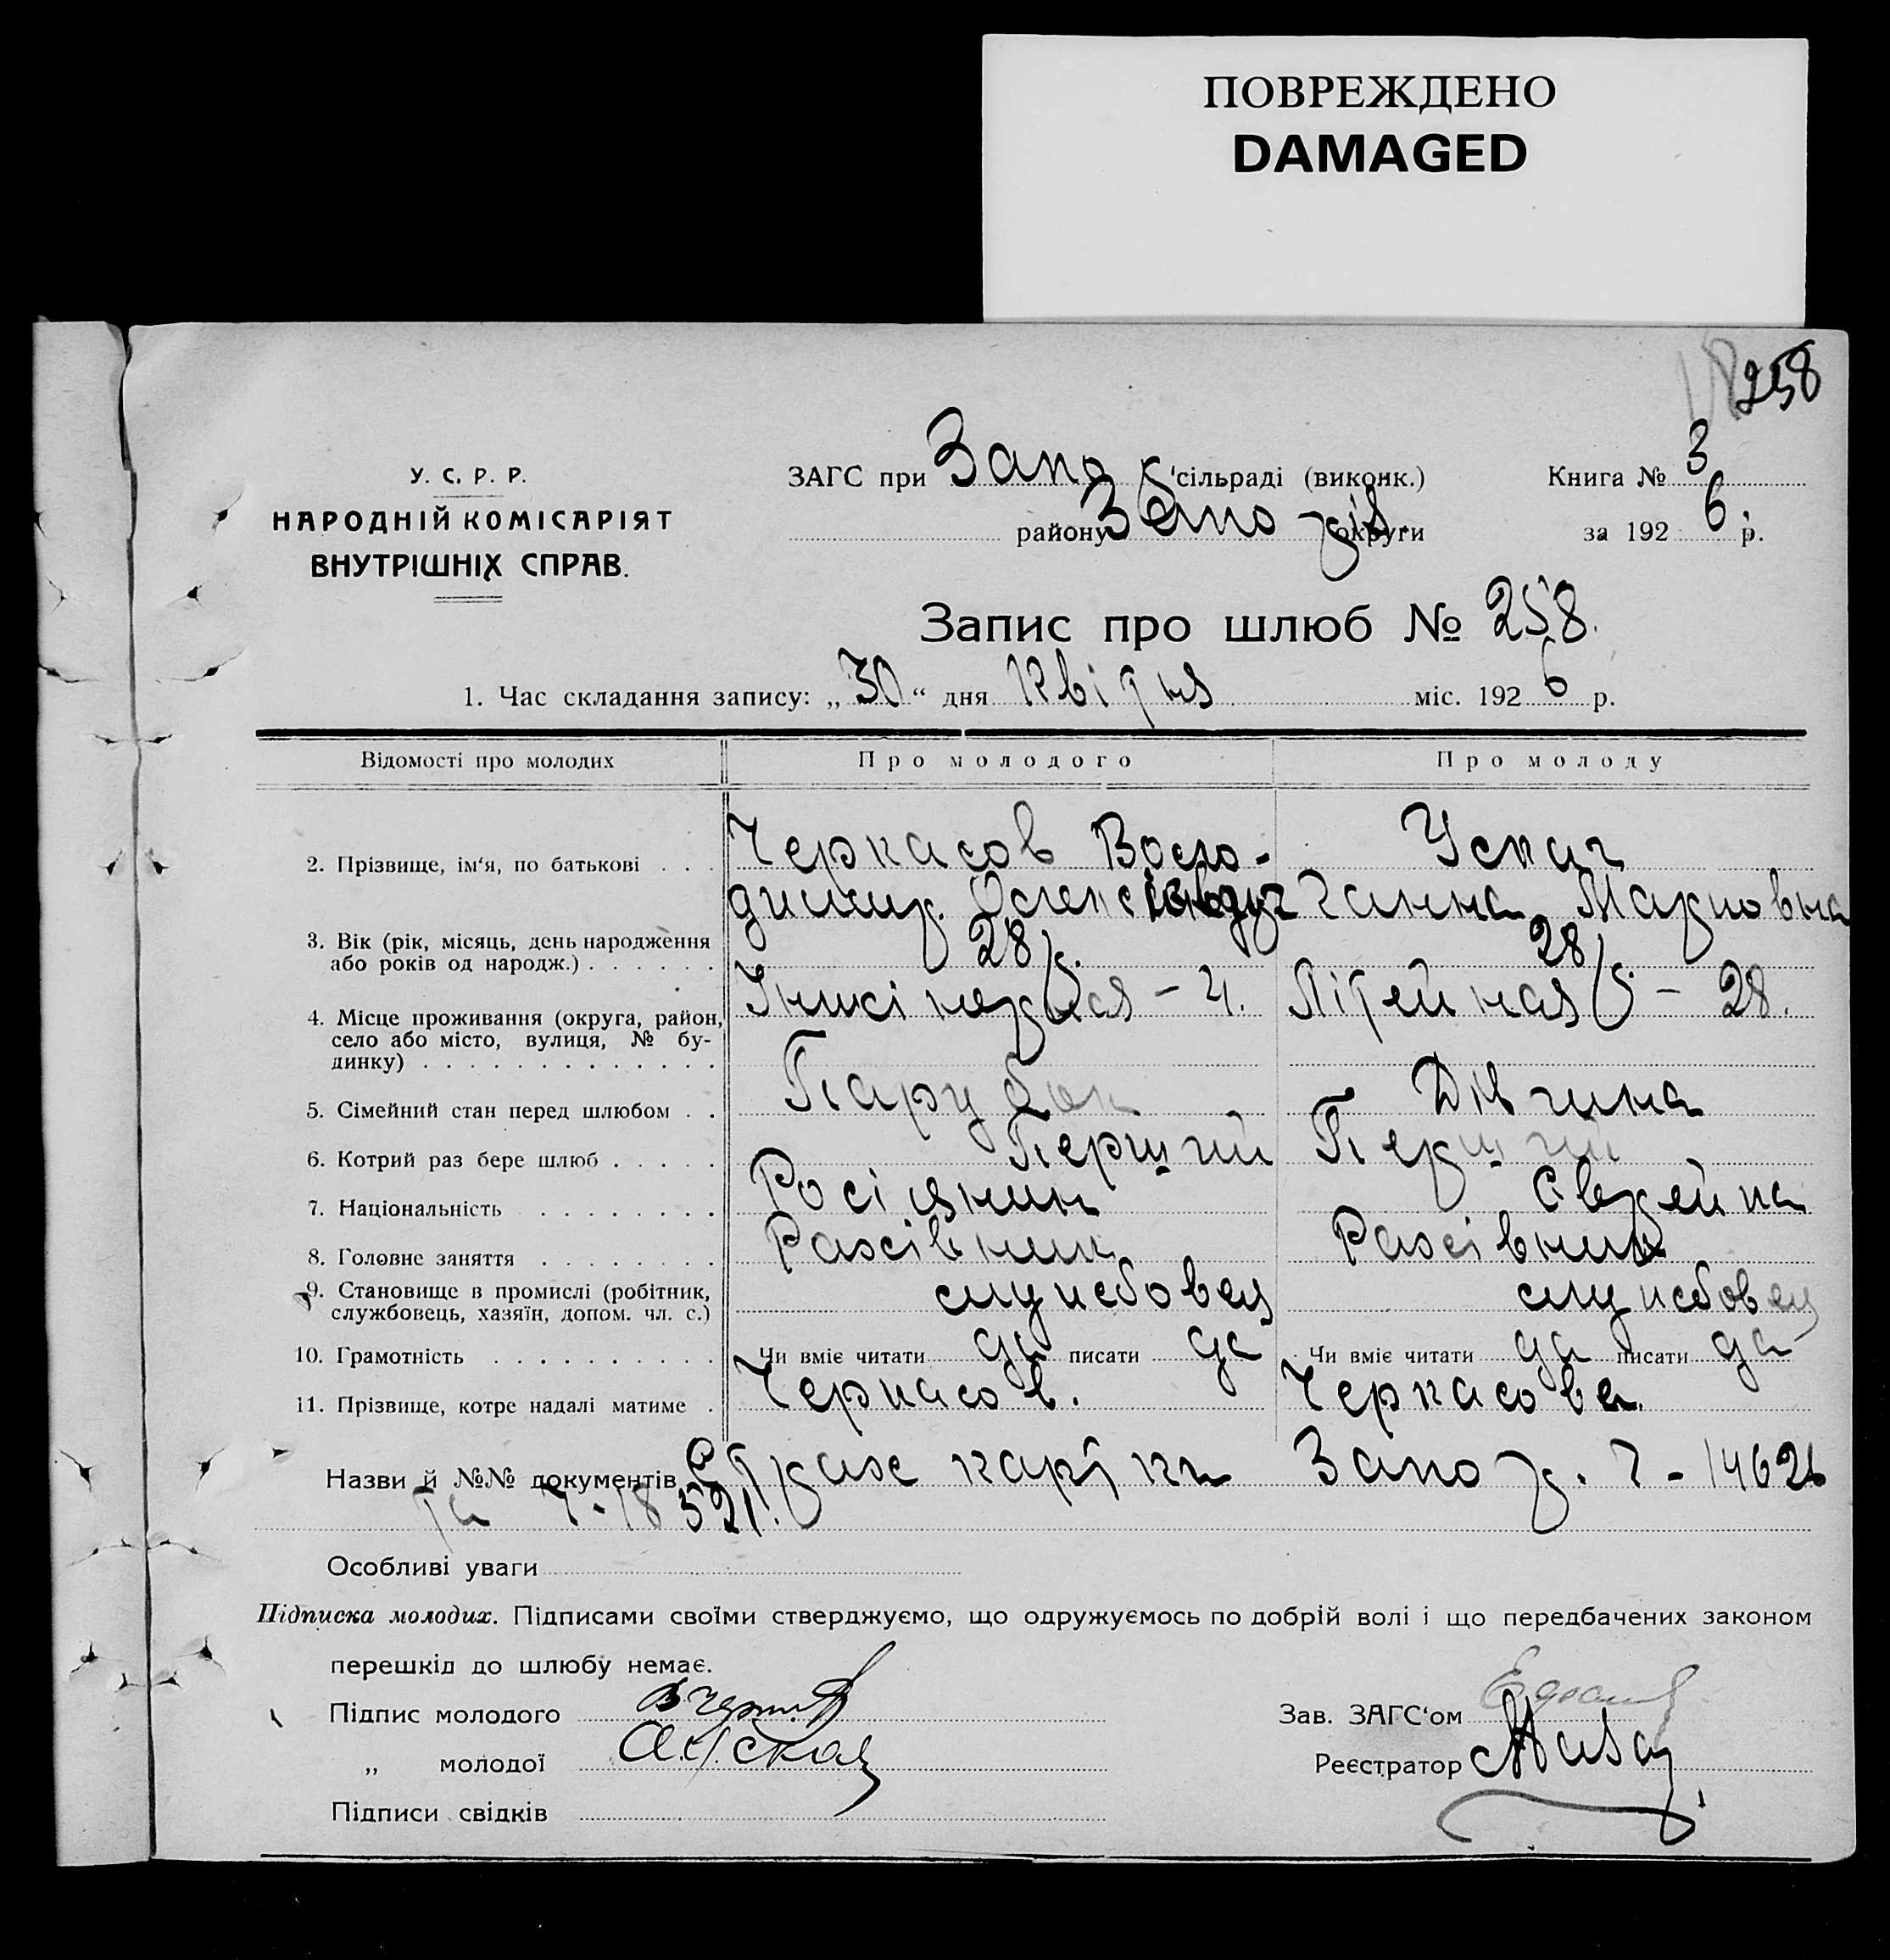 ПОВРЕЖДЕНО
DAMAGED
258
У. С. Р. Р.
НАРОДНІЙ КОМІСАРІЯТ
ВНУТРІШНІХ СПРАВ.
ЗАГС при Запо к сільраді (виконк.)
району Запоріз. округи
Книга № 3
за 1926 р.
Запис про шлюб № 258.
1. Час складання запису: „30“ дня Квітня міс. 1926 р.
Відомості про молодих Про молодого Про молоду
2. Прізвище, ім‘я, по батькові . . . Черкасов Воло-
димир Ганна Марковна
3. Вік (рік, місяць, день народження або років од народж.) . . . . . . 28 р. 28 р.
4. Місце проживання (округа, район, село або місто, вулиця, № будинку) . . . . . . . . . . . . . - 4. Літейная - 28.
5. Сімейний стан перед шлюбом . . Парубок Дівчина
6. Котрий раз бере шлюб . . . . . Перший Перший
7. Національність . . . . . . . . Росіянин Єврейка
8. Головне заняття . . . . . . . . Рахівник Рахівник
9. Становище в промислі (робітник, службовець, хазяїн, допом. чл. с.) службовец службовец
10. Грамотність . . . . . . . . . . Чи вміє читати да писати да Чи вміє читати да писати да
11. Прізвище, котре надалі матиме . Черкасов. Черкасова.
Назви й №№ документів Страх картки Запор. 7 - 14626
та 7 - 18521.
Особливі уваги
Підписка молодих. Підписами своїми стверджуємо, що одружуємось по добрій волі і що передбачених законом
перешкід до шлюбу немає.
Підпис молодого
„ молодої
Підписи свідків
Зав. ЗАГС‘ом
Реєстратор